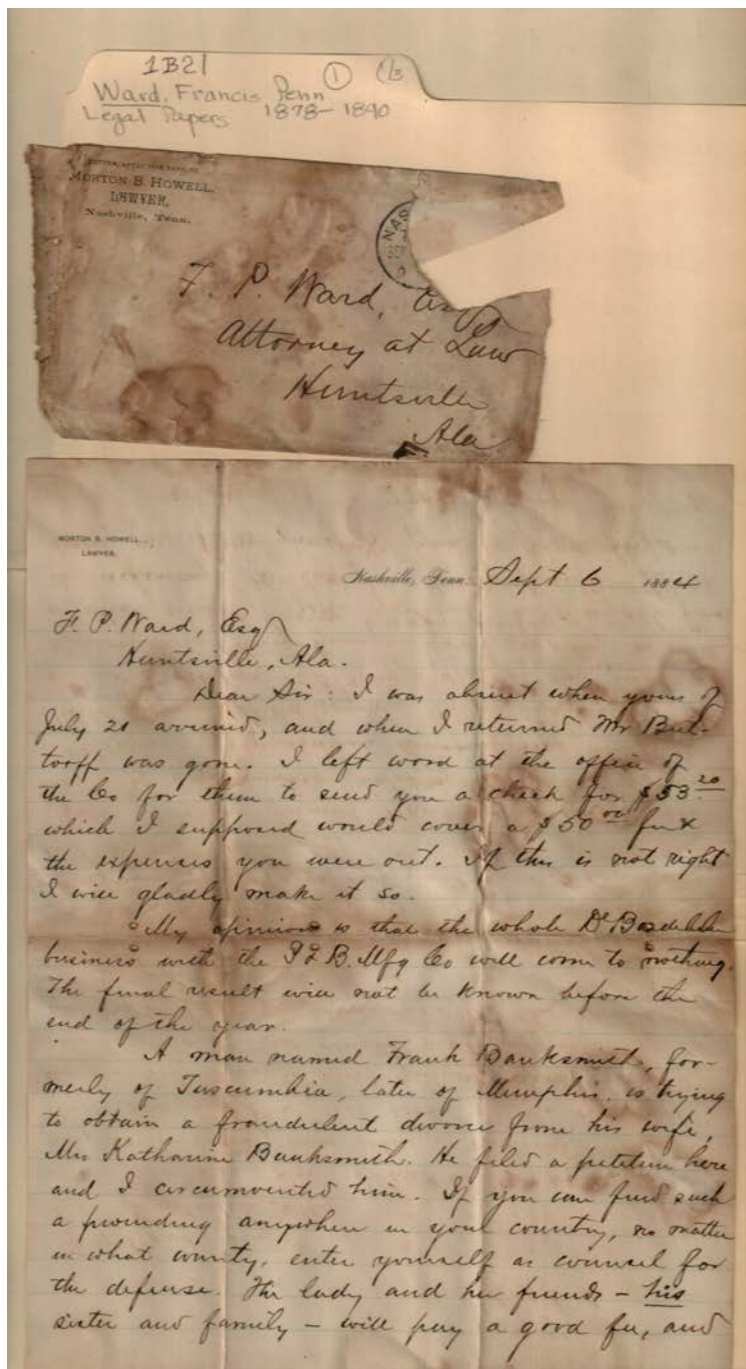 1B21
① 1/3
Ward, Francis Penn
Legal Papers 1878-1890
MORTON B. HOWELL,
LAWYER,
Nashville, Tenn.
NAS
F. P. Ward, Esq
Attorney at Law
Huntsville
Ala
MORTON B. HOWELL,
LAWYER.
Nashville, Tenn. Sept 6 1884
F. P. Ward, Esq
Huntsville, Ala.
Dear Sir: I was absent when yours of
July 21 arrived, and when I returned Mr But-
torff was gone. I left word at the office of
the Co for them to send you a check for $53.20
which I supposed would cover a $50.00 fee &
the expenses you were out. If this is not right
I will gladly make it so.
My opinion is that the whole
business with the Mfg Co will come to nothing.
The final result will not be known before the
end of the year.
A man named Frank Banksmith, for-
merly of Tuscumbia, later of Memphis, is trying
to obtain a fraudulent divorce from his wife,
Mrs Katharine Banksmith. He filed a petition here
and I circumvented him. If you can find such
a proceeding anywhere in your country, no matter
in what county, enter yourself as counsel for
the defense. The lady and her friends - his
sister and family - will pay a good fee, and